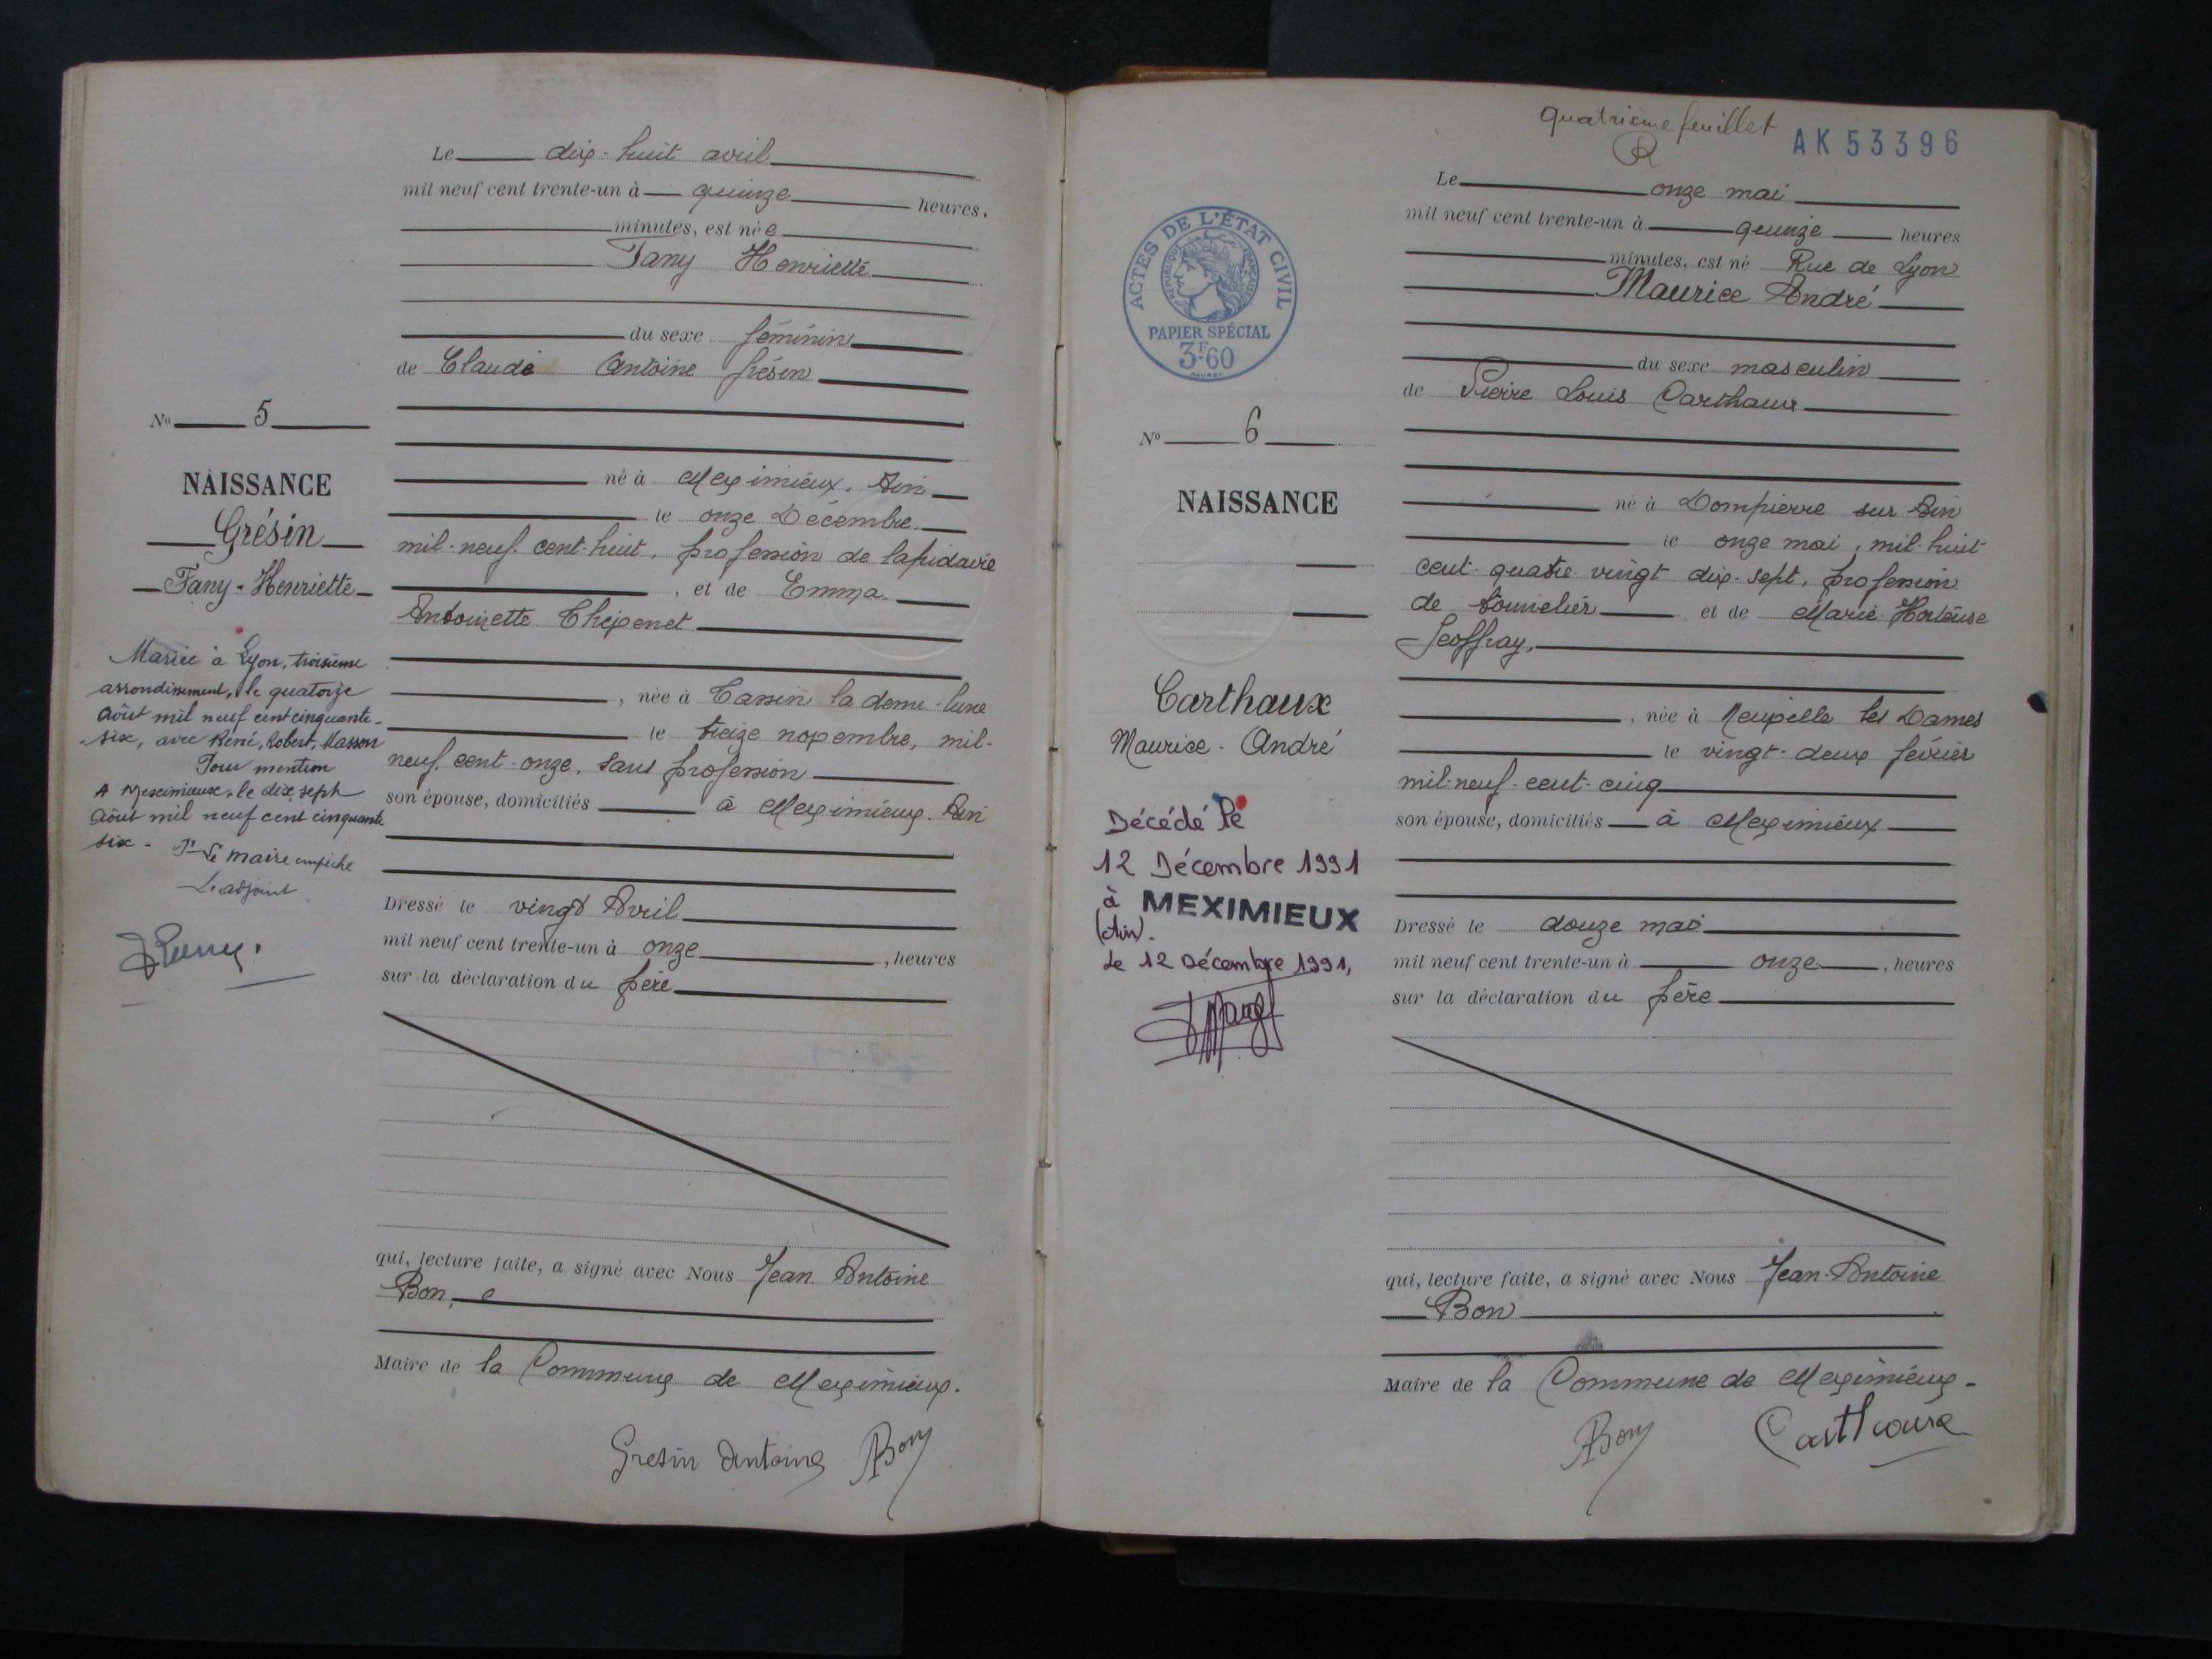 Le dix-huit avril
mil neuf cent trente-un à quinze heures.
minutes, est née
Fany Henriette
du sexe féminin
de Claude Antoine Grésin
né à Meximieux. Ain
le onze Décembre
mil-neuf-cent-huit, profession de lapidaire
, et de Emma
Antoinette
, née à Tassin la demi-lune
le treize novembre, mil-
neuf-cent-onze, sans profession
son épouse, domiciliés à Meximieux. Ain
Dressé le vingt Avril
mil neuf cent trente-un à onze , heures
sur la déclaration du père
qui, lecture faite, a signé avec Nous Jean Antoine
Bon,
Maire de la Commune de Meximieux.
Gresin Antoine Bon
No 5
NAISSANCE
Grésin
Fany-Henriette
Mariée à Lyon, troisième
arrondissement, le quatorze
Août mil neuf cent cinquante-
six, avec René, Robert, Masson
Pour mention
A Meximieux, le dix sept
Août mil neuf cent cinquante
six - Pr Le maire empêché
L'adjoint
quatrième feuillet
R
AK 53396
Le onze mai
mil neuf cent trente-un à quinze heures
minutes, est né Rue de Lyon
Maurice André
du sexe masculin
de Pierre Louis Carthaux
né à Dompierre sur Ain
le onze mai, mil-huit-
cent-quatre-vingt dix-sept, profession
de tonnelier et de Marie Hortense
Geoffray,
, née à Neuville les Dames
le vingt-deux février
mil-neuf-cent-cinq
son épouse, domiciliés à Meximieux
Dressé le douze mai
mil neuf cent trente-un à onze , heures
sur la déclaration du père
qui, lecture faite, a signé avec Nous Jean-Antoine
Bon
Maire de la Commune de Meximieux-
Bon Carthaux
ACTES DE L'ÉTAT CIVIL
RÉPUBLIQUE FRANÇAISE
PAPIER SPÉCIAL
3F60
No 6
NAISSANCE
Carthaux
Maurice-André
Décédé le
12 Décembre 1991
à MEXIMIEUX
(Ain).
Le 12 Décembre 1991,